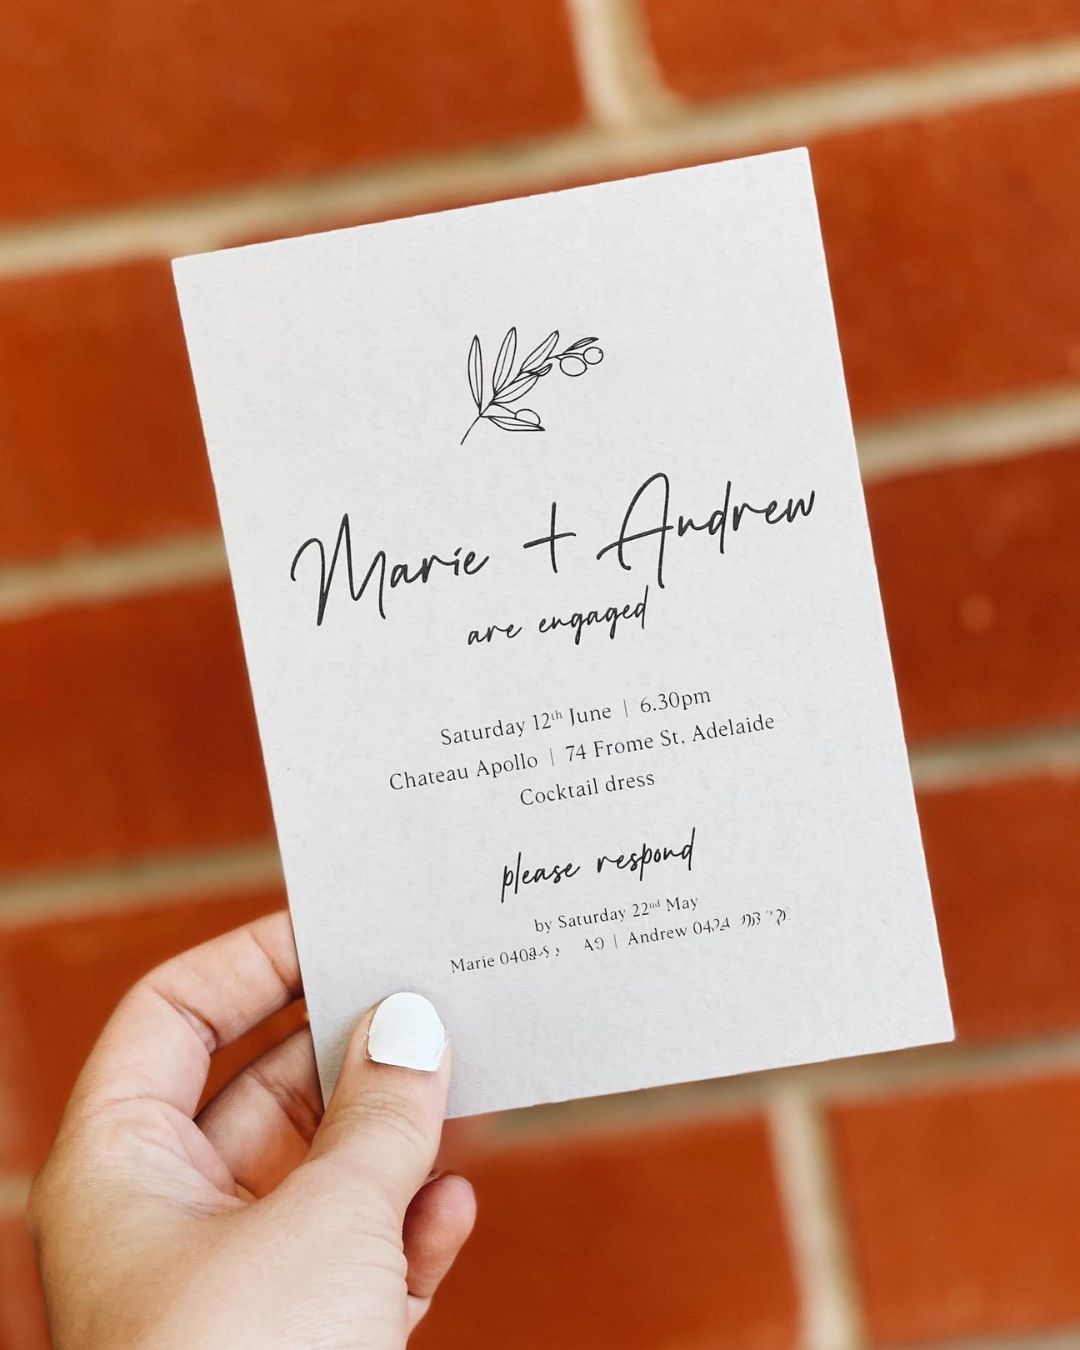 Marie + Andrew
are engaged
Saturday 12th June | 6.30pm
Chateau Apollo | 74 Frome St, Adelaide
Cocktail dress
please respond
by Saturday 22nd May
Marie | Andrew